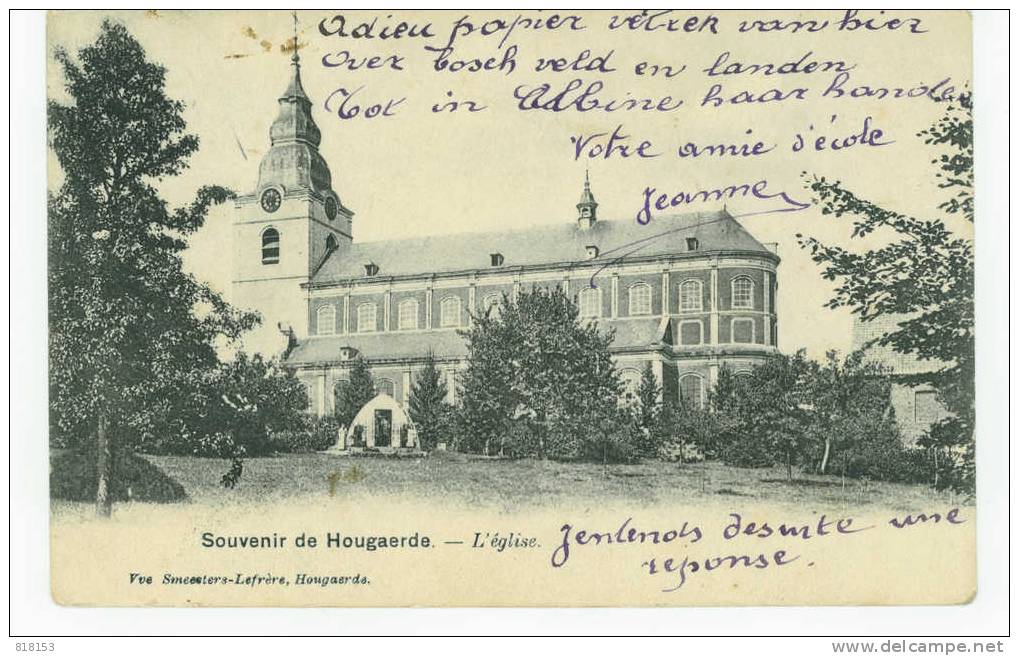 Adieu papier vetrek van hier
over bosch veld en landen
Tot in Albine haar handen
Votre amie d'école
Jeanne
Souvenir de Hougaerde. — L'église.
J'entends desuite une
reponse.
Vve Smeesters-Lefrère, Hougaerde.
818153
www.delcampe.net